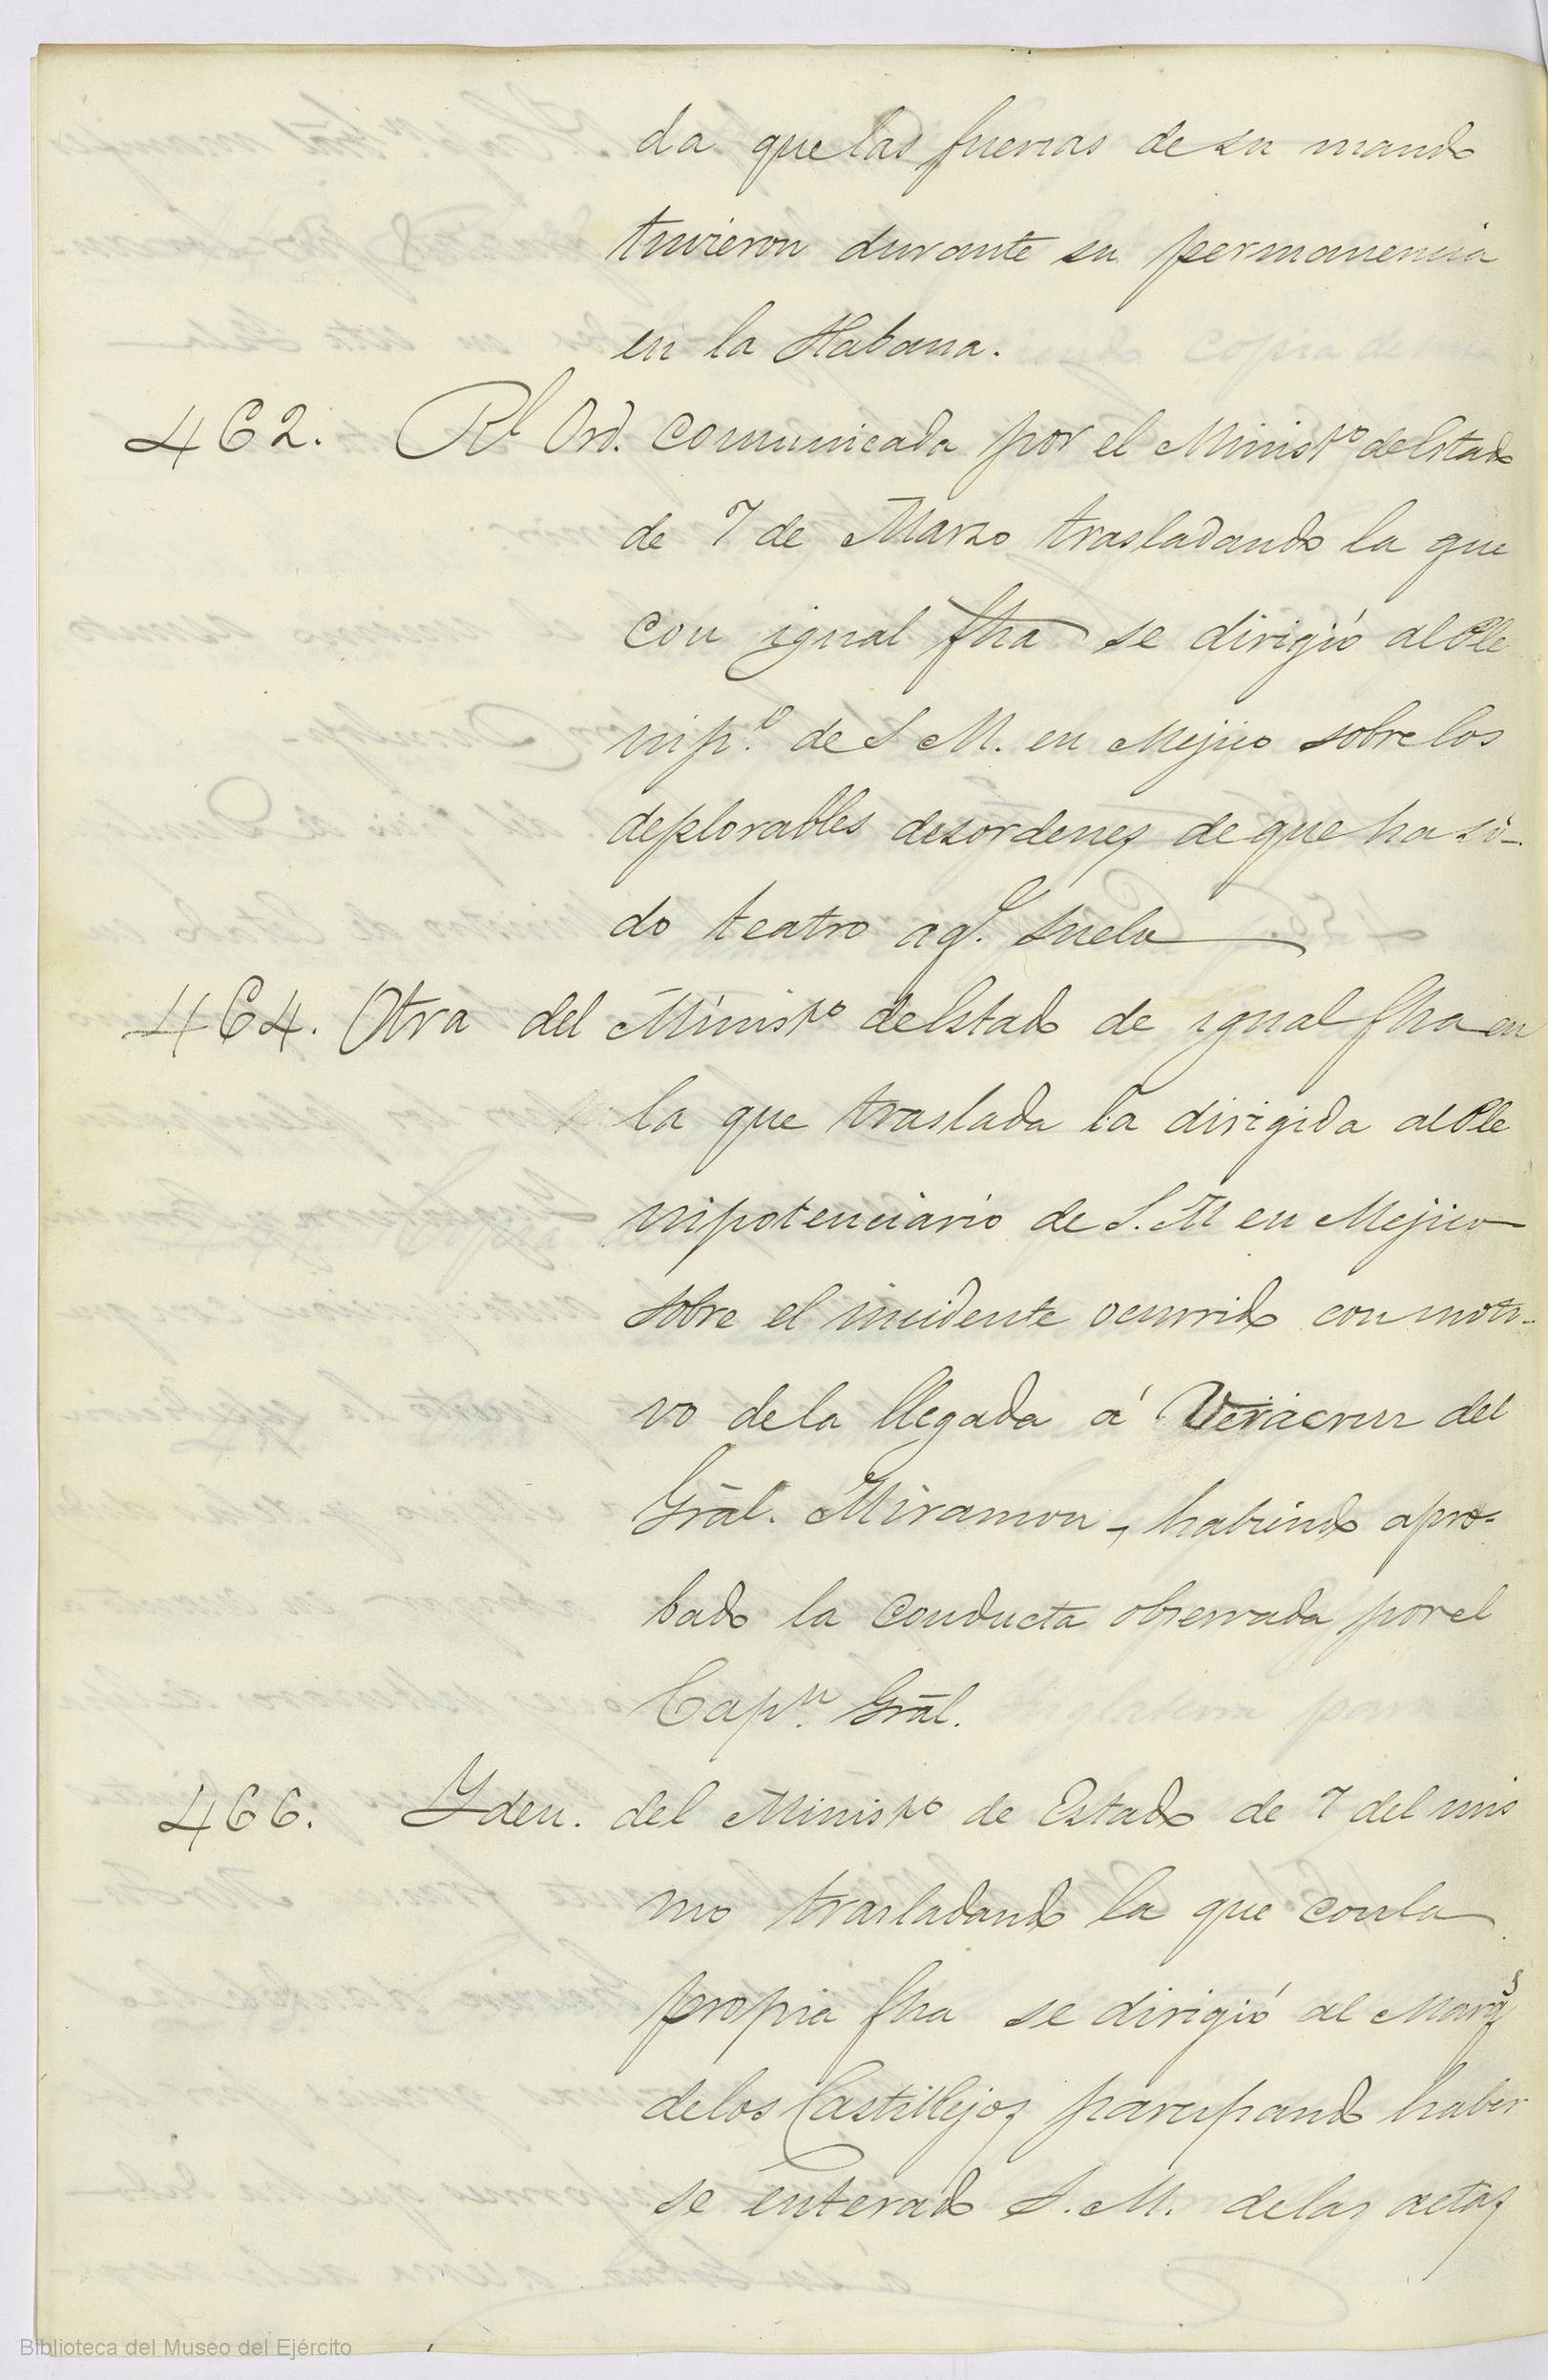 da que las fuerzas de su mando
tuvieron durante su permanencia
en la Habana.
462. Rl Ord. comunicada por el Ministo de Estado
de 7 de Marzo trasladando la que
con igual fha se dirigió al Ple
nipo. de S M. en Mejico sobre los
deplorables desordenes de que ha si-
do teatro aql. suelo
464. Otra del Ministo de Estado de igual fha en
la que traslada la dirigida al Ple
nipotenciario de S. M en Mejico
sobre el incidente ocurrido con moti-
vo de la llegada á Veracruz del
Grāl. Miramon -, habiendo apro-
bado la conducta observada por el
Capn. Grāl.
466. Yden. del Ministo de Estado de 7 del mis
mo trasladando la que con la
propia fha se dirigió al Marqs
de los Castillejos paricipando haber
se enterado S. M. de las actas
Biblioteca del Museo del Ejército